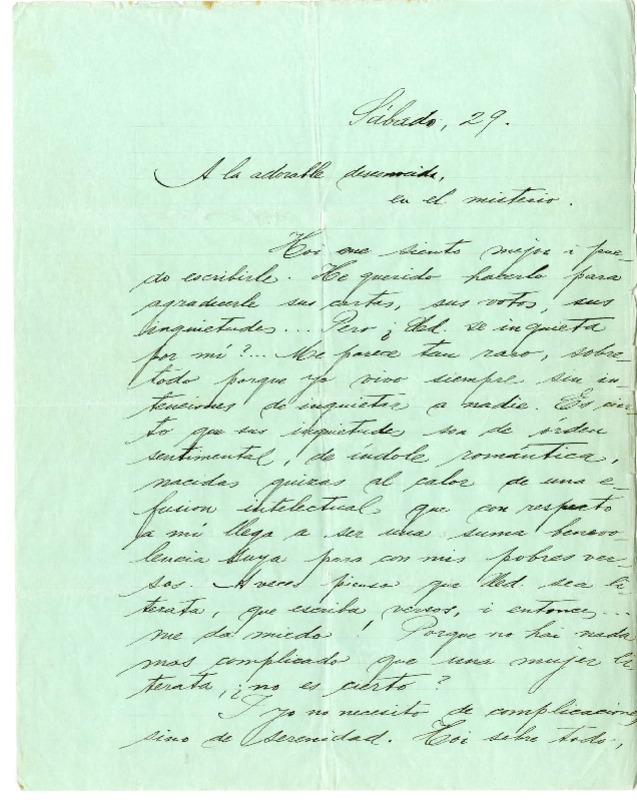 Sábado, 29.
A la adorable desconocida,
en el misterio.
Hoi me siento mejor i pue-
do escribirle. He querido hacerlo para
agradecerle sus cartas, sus votos, sus
inquietudes... Pero ¿Ud. se inquieta
por mi?... Me parece tan raro, sobre-
todo porque yo vivo siempre sin in-
tenciones de inquietar a nadie. Es cier-
to que sus inquietudes son de órden
sentimental, de indole romántica,
nacidas quizas al calor de una e-
fusion intelectual que con respecto
a mí llega a ser una suma benevo-
lencia suya para con mis pobres ver-
sos. A veces pienso que Ud. sea li
terata, que escriba versos, i entonces...
me da miedo! Porque no hai nada
mas complicado que una mujer li
terata, ¿no es cierto?
I yo no necesito de complicacione
sino de serenidad. Hoi sobre todo,